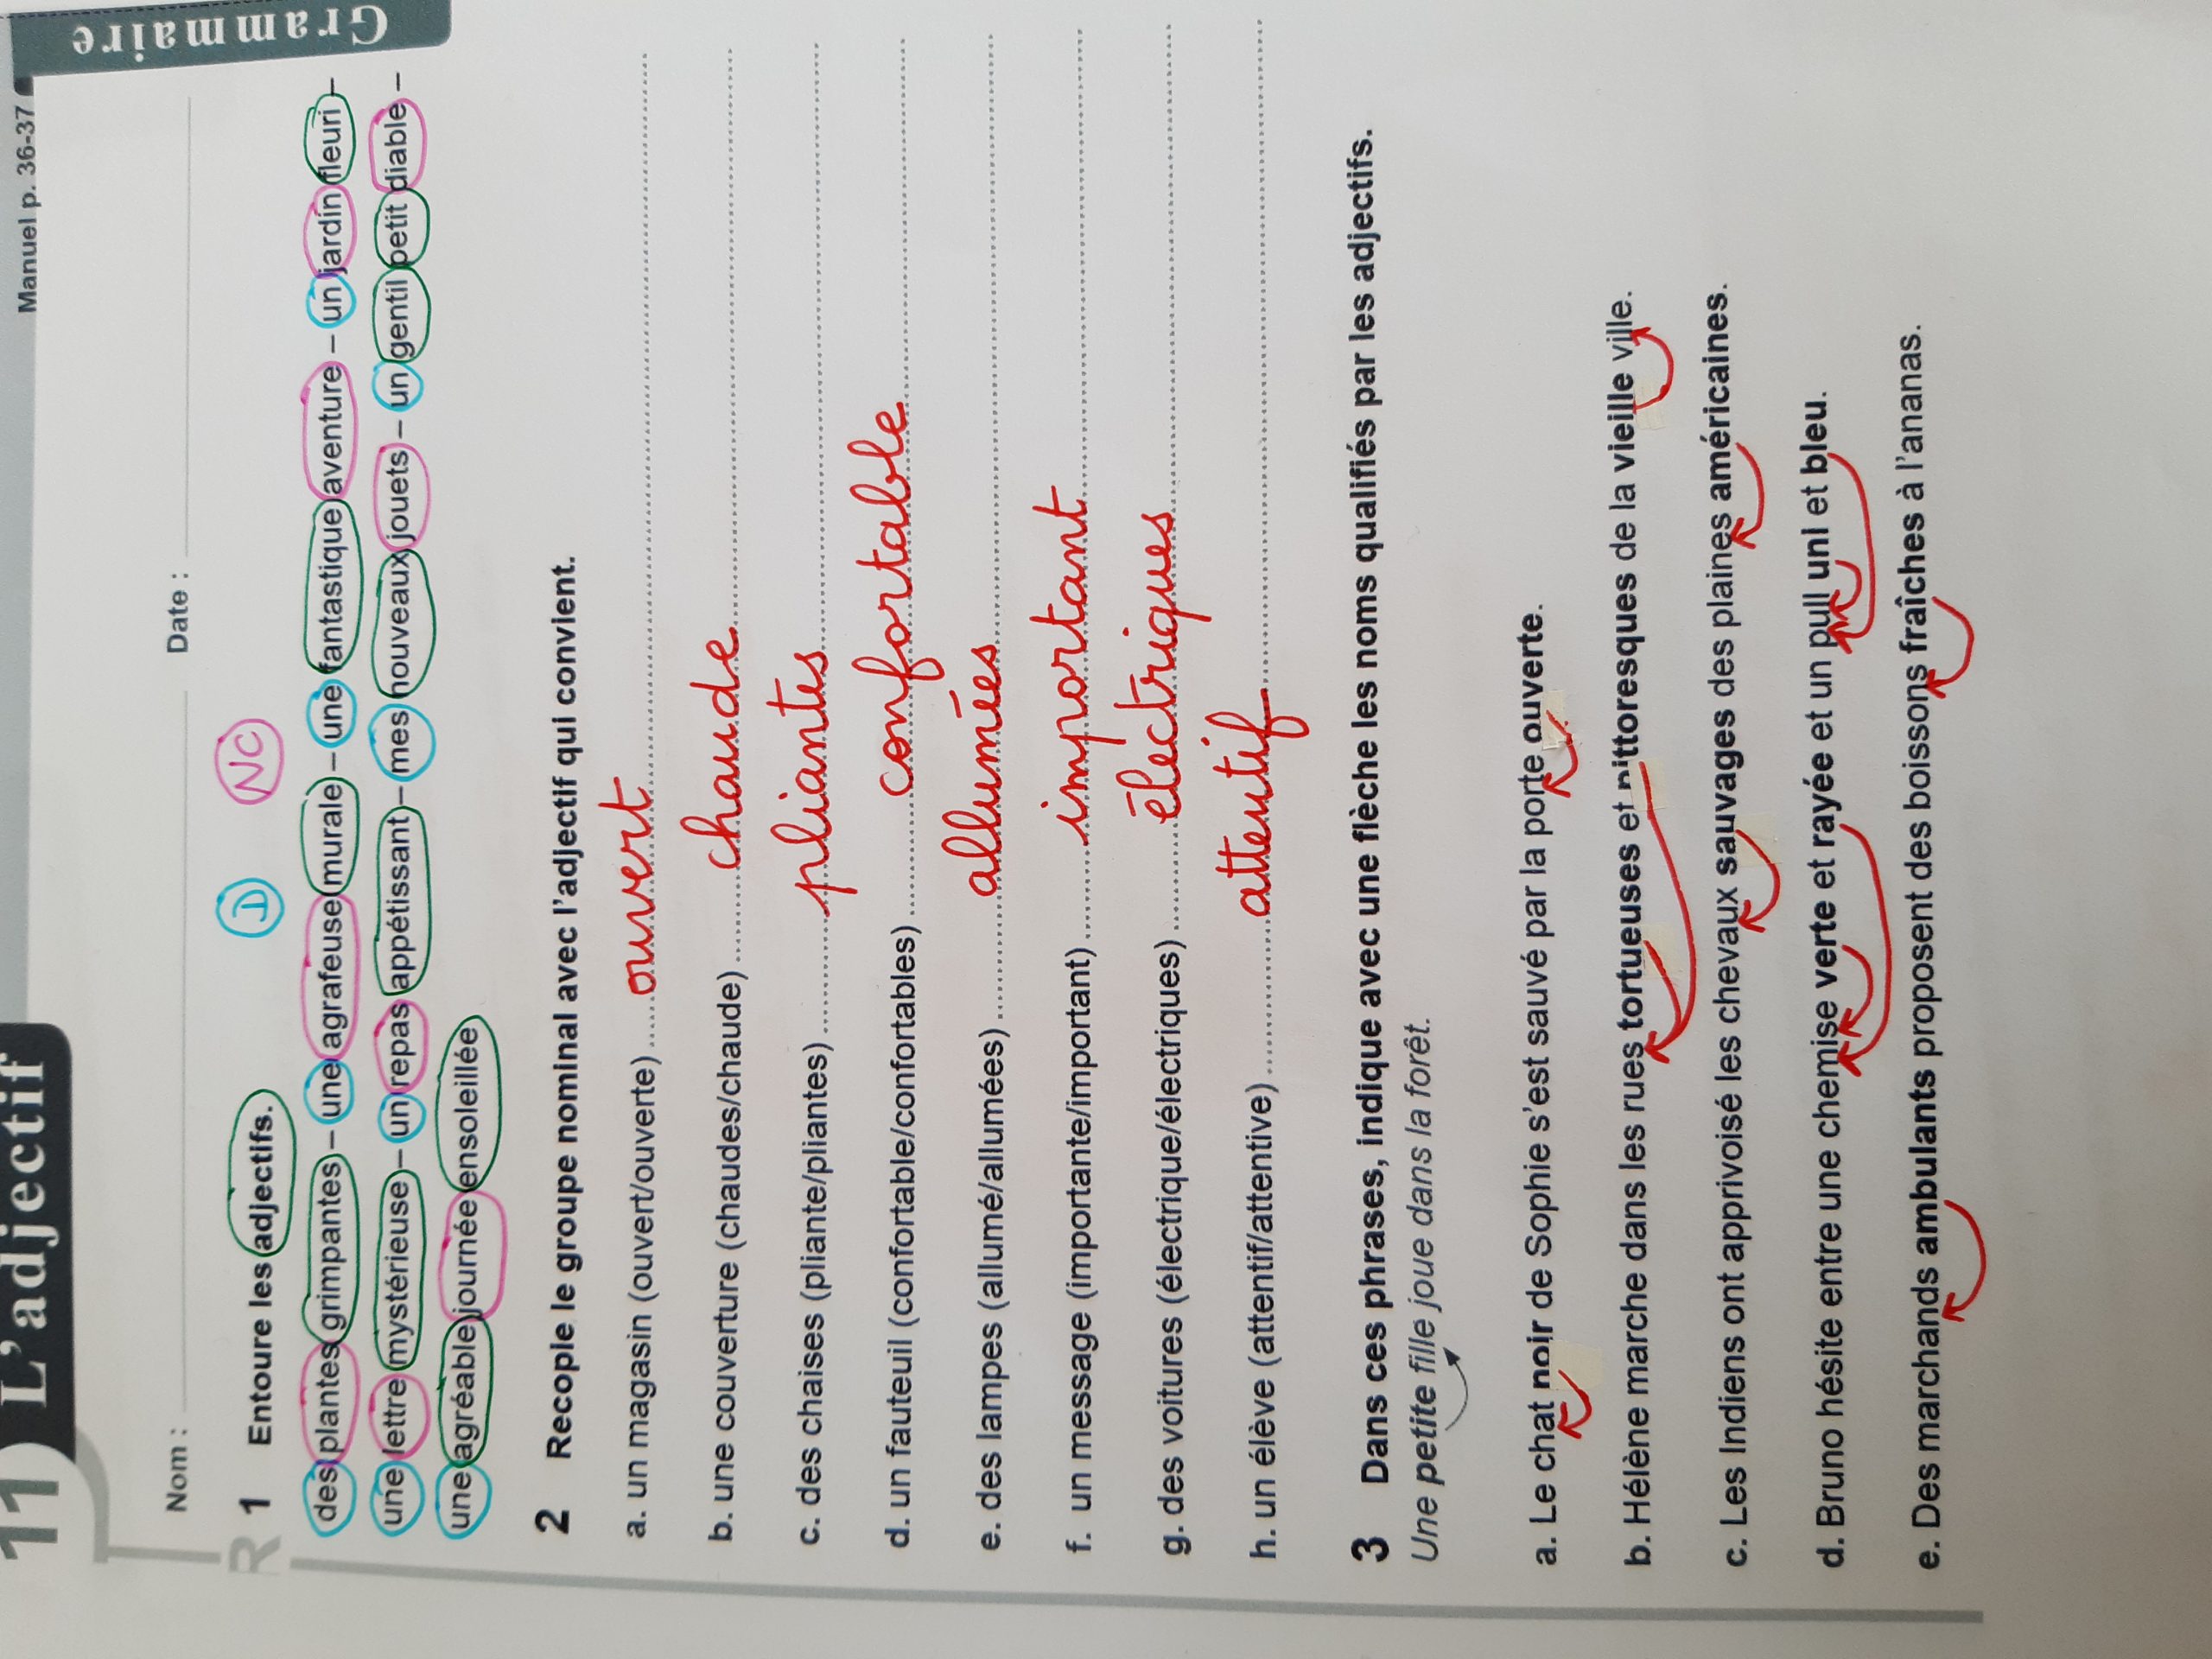 Manuel p. 36-37
Grammaire
11 L'adjectif
Nom : Date :
D NC
R 1 Entoure les adjectifs.
des plantes grimpantes – une agrafeuse murale – une fantastique aventure – un jardin fleuri –
une lettre mystérieuse – un repas appétissant – mes nouveaux jouets – un gentil petit diable –
une agréable journée ensoleillée
2 Recopie le groupe nominal avec l'adjectif qui convient.
a. un magasin (ouvert/ouverte) ouvert
b. une couverture (chaudes/chaude) chaude
c. des chaises (pliante/pliantes) pliantes
d. un fauteuil (confortable/confortables) confortable
e. des lampes (allumé/allumées) allumées
f. un message (importante/important) important
g. des voitures (électrique/électriques) électriques
h. un élève (attentif/attentive) attentif
3 Dans ces phrases, indique avec une flèche les noms qualifiés par les adjectifs.
Une petite fille joue dans la forêt.
a. Le chat noir de Sophie s'est sauvé par la porte ouverte.
b. Hélène marche dans les rues tortueuses et pittoresques de la vieille ville.
c. Les Indiens ont apprivoisé les chevaux sauvages des plaines américaines.
d. Bruno hésite entre une chemise verte et rayée et un pull uni et bleu.
e. Des marchands ambulants proposent des boissons fraîches à l'ananas.